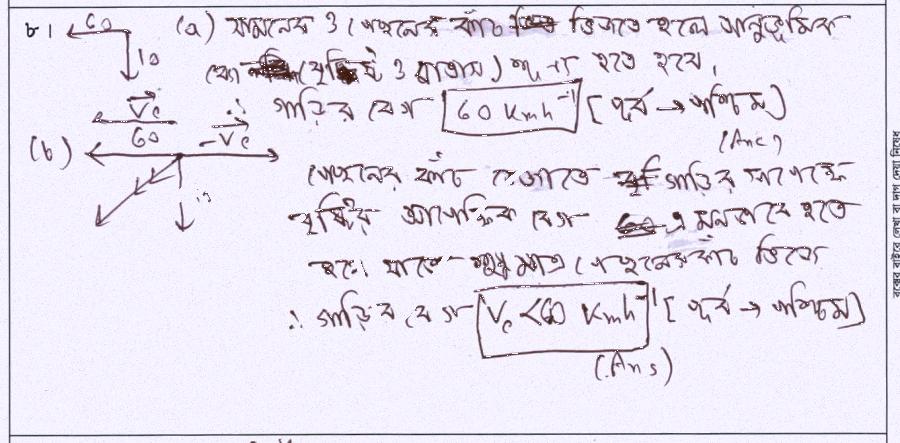 ৮। 60
10
(a) সামনের ও পেছনের কাঁচ ভিজতে হলে আনুভূমিক
বেগ (বৃষ্টি ও বাতাস) শূন্য হতে হবে।
∴ গাড়ির বেগ 60 Kmh⁻¹ [পূর্ব → পশ্চিম]
(Ans)
(b) V_c
60 -V_c
পেছনের কাঁচ ভেজাতে গাড়ির সাপেক্ষে
বৃষ্টির আপেক্ষিক বেগ এমনভাবে হতে
হবে। যাতে শুধুমাত্র পেছনের কাঁচ ভিজে
∴ গাড়ির বেগ V_c < 60 Kmh⁻¹ [পূর্ব → পশ্চিম]
(Ans)
বক্সের বাইরে লেখা বা দাগ দেয়া নিষেধ